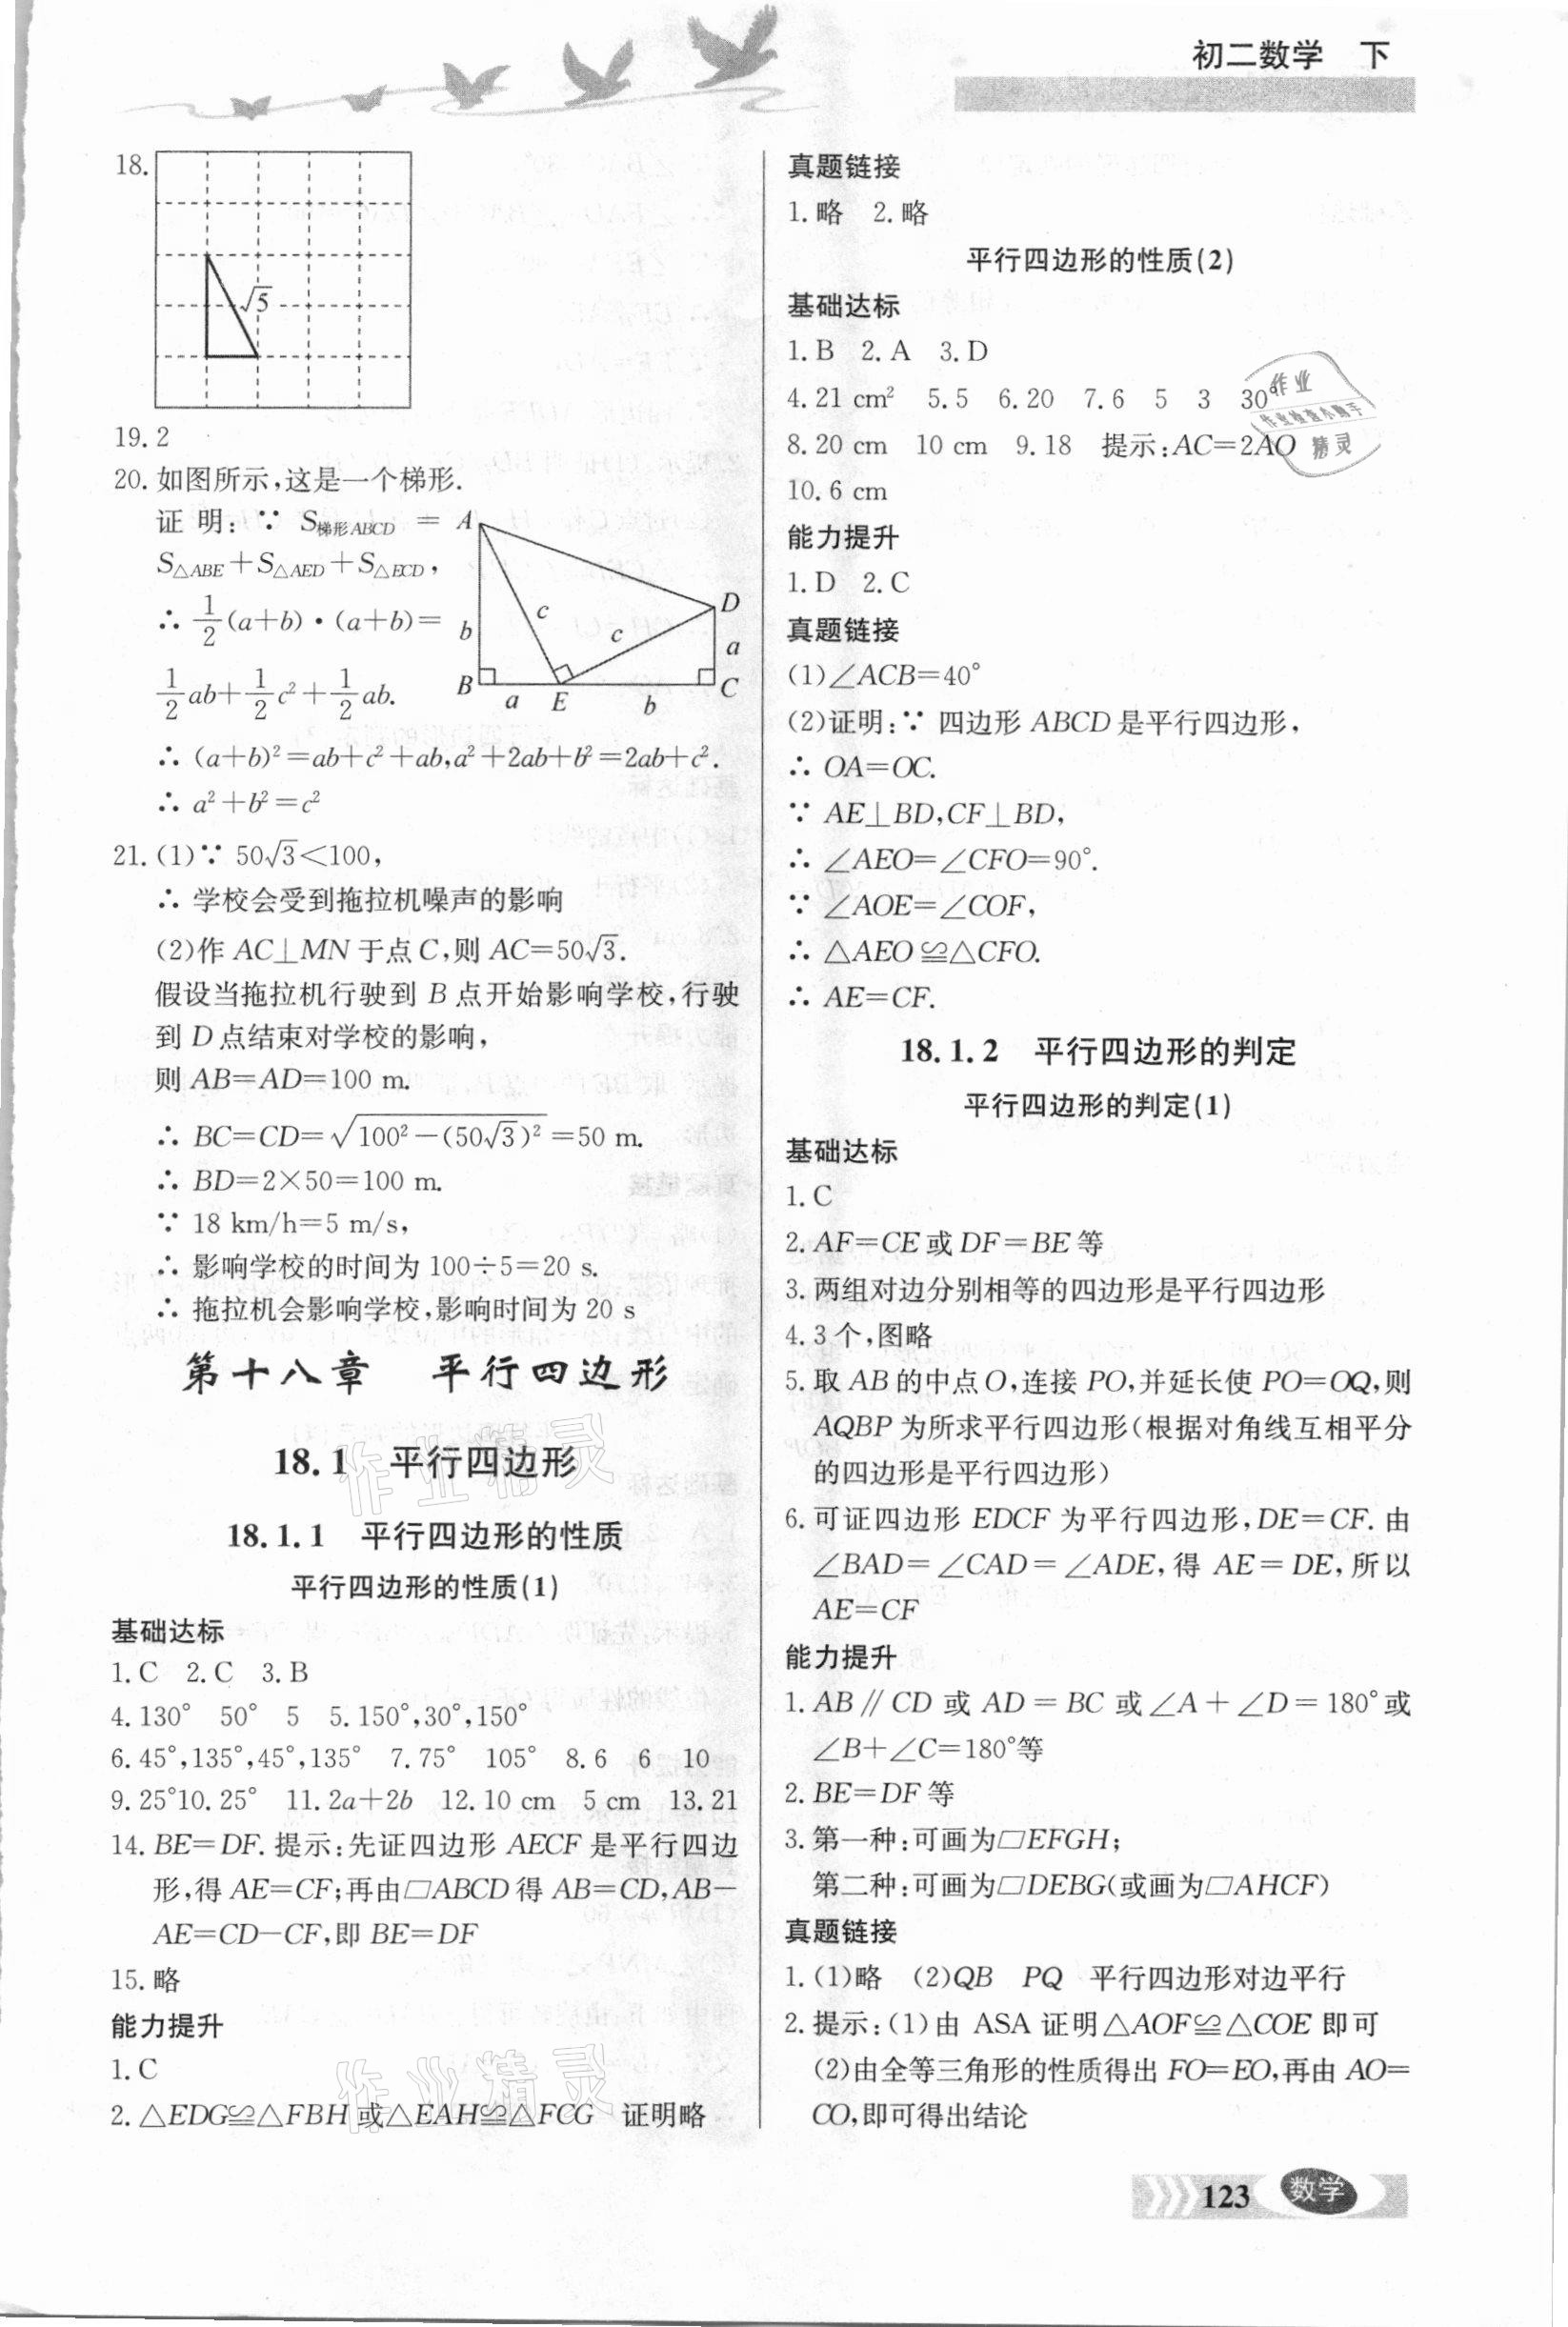 初二数学 下
18.
√5
19. 2
20. 如图所示,这是一个梯形.
证明:∵ S梯形ABCD =
S△ABE+S△AED+S△ECD,
∴ 1/2(a+b)·(a+b)=
1/2ab+1/2c²+1/2ab.
A
D
c
c
b
a
B
a
E
b
C
∴ (a+b)²=ab+c²+ab,a²+2ab+b²=2ab+c².
∴ a²+b²=c²
21. (1)∵ 50√3<100,
∴ 学校会受到拖拉机噪声的影响
(2)作 AC⊥MN 于点 C,则 AC=50√3.
假设当拖拉机行驶到 B 点开始影响学校,行驶
到 D 点结束对学校的影响,
则 AB=AD=100 m.
∴ BC=CD=√(100²-(50√3)²)=50 m.
∴ BD=2×50=100 m.
∵ 18 km/h=5 m/s,
∴ 影响学校的时间为 100÷5=20 s.
∴ 拖拉机会影响学校,影响时间为 20 s
第十八章 平行四边形
18.1 平行四边形
18.1.1 平行四边形的性质
平行四边形的性质(1)
基础达标
1. C 2. C 3. B
4. 130° 50° 5 5. 150°,30°,150°
6. 45°,135°,45°,135° 7. 75° 105° 8. 6 6 10
9. 25°10. 25° 11. 2a+2b 12. 10 cm 5 cm 13. 21
14. BE=DF. 提示:先证四边形 AECF 是平行四边
形,得 AE=CF;再由▱ABCD 得 AB=CD,AB-
AE=CD-CF,即 BE=DF
15. 略
能力提升
1. C
2. △EDG≌△FBH 或△EAH≌△FCG 证明略
真题链接
1. 略 2. 略
平行四边形的性质(2)
基础达标
1. B 2. A 3. D
4. 21 cm² 5. 5 6. 20 7. 6 5 3 30°
8. 20 cm 10 cm 9. 18 提示:AC=2AO
10. 6 cm
能力提升
1. D 2. C
真题链接
(1)∠ACB=40°
(2)证明:∵ 四边形 ABCD 是平行四边形,
∴ OA=OC.
∵ AE⊥BD,CF⊥BD,
∴ ∠AEO=∠CFO=90°.
∵ ∠AOE=∠COF,
∴ △AEO≌△CFO.
∴ AE=CF.
18.1.2 平行四边形的判定
平行四边形的判定(1)
基础达标
1. C
2. AF=CE 或 DF=BE 等
3. 两组对边分别相等的四边形是平行四边形
4. 3 个,图略
5. 取 AB 的中点 O,连接 PO,并延长使 PO=OQ,则
AQBP 为所求平行四边形(根据对角线互相平分
的四边形是平行四边形)
6. 可证四边形 EDCF 为平行四边形,DE=CF. 由
∠BAD=∠CAD=∠ADE,得 AE=DE,所以
AE=CF
能力提升
1. AB∥CD 或 AD=BC 或∠A+∠D=180°或
∠B+∠C=180°等
2. BE=DF 等
3. 第一种:可画为▱EFGH;
第二种:可画为▱DEBG(或画为▱AHCF)
真题链接
1. (1)略 (2)QB PQ 平行四边形对边平行
2. 提示:(1)由 ASA 证明△AOF≌△COE 即可
(2)由全等三角形的性质得出 FO=EO,再由 AO=
CO,即可得出结论
123 数学
作业
作业检查小助手
精灵
作业精灵
作业精灵